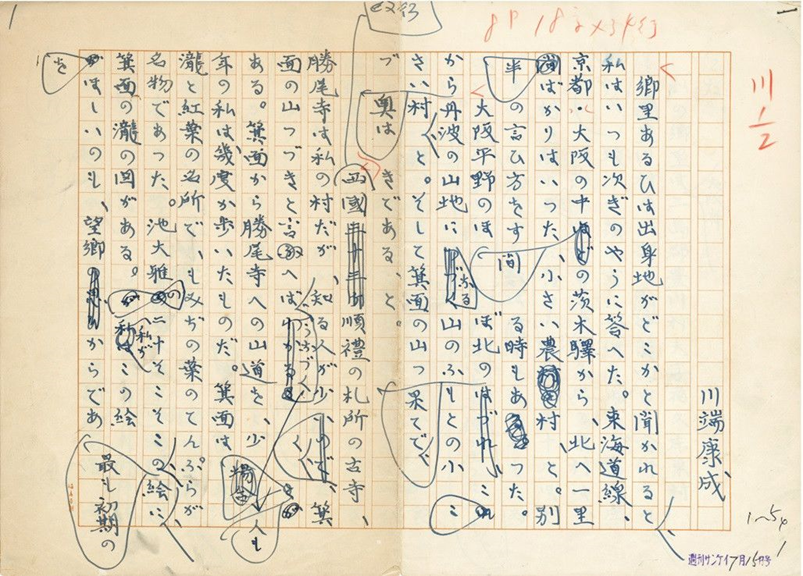 川1/2
川端康成
郷里あるひは出身地がどこかと聞かれると
私はいつも次ぎのやうに答へた。東海道線、
京都・大阪の中間の茨木驛から、北へ一里
半ばかりはいった、小さい農村と。別
の言ひ方をする時もあった。
大阪平野のほぼ北のはづれ、
から丹波の山地にかかる山のふもとの小
さい村、と。そして箕面の山つ
づきである、と。
奥は
果てで
西國順禮の札所の古寺、
勝尾寺は私の村だが、知る人が少 箕
面の山つづきと言へば
ある。箕面から勝尾寺への山道を、少
年の私は幾度か歩いたものだ。箕面は
瀧と紅葉の名所で、もみぢの葉のてんぷらが
名物であった。池大雅の二十そこそこの絵に
箕面の瀧の図がある。私がこの絵
を
がほしいのも、望郷からであ
最も初期の
週刊サンケイ7月15日号